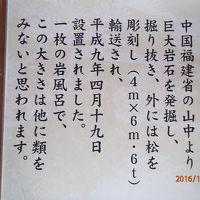 中国福建省の山中より
巨大岩石を発掘し、
掘り抜き、外には松を
彫刻し(4m×6m・6t)
輸送され、
平成九年四月十九日
設置されました。
一枚の岩風呂で、
この大きさは他に類を
みないと思われます。
2016/1